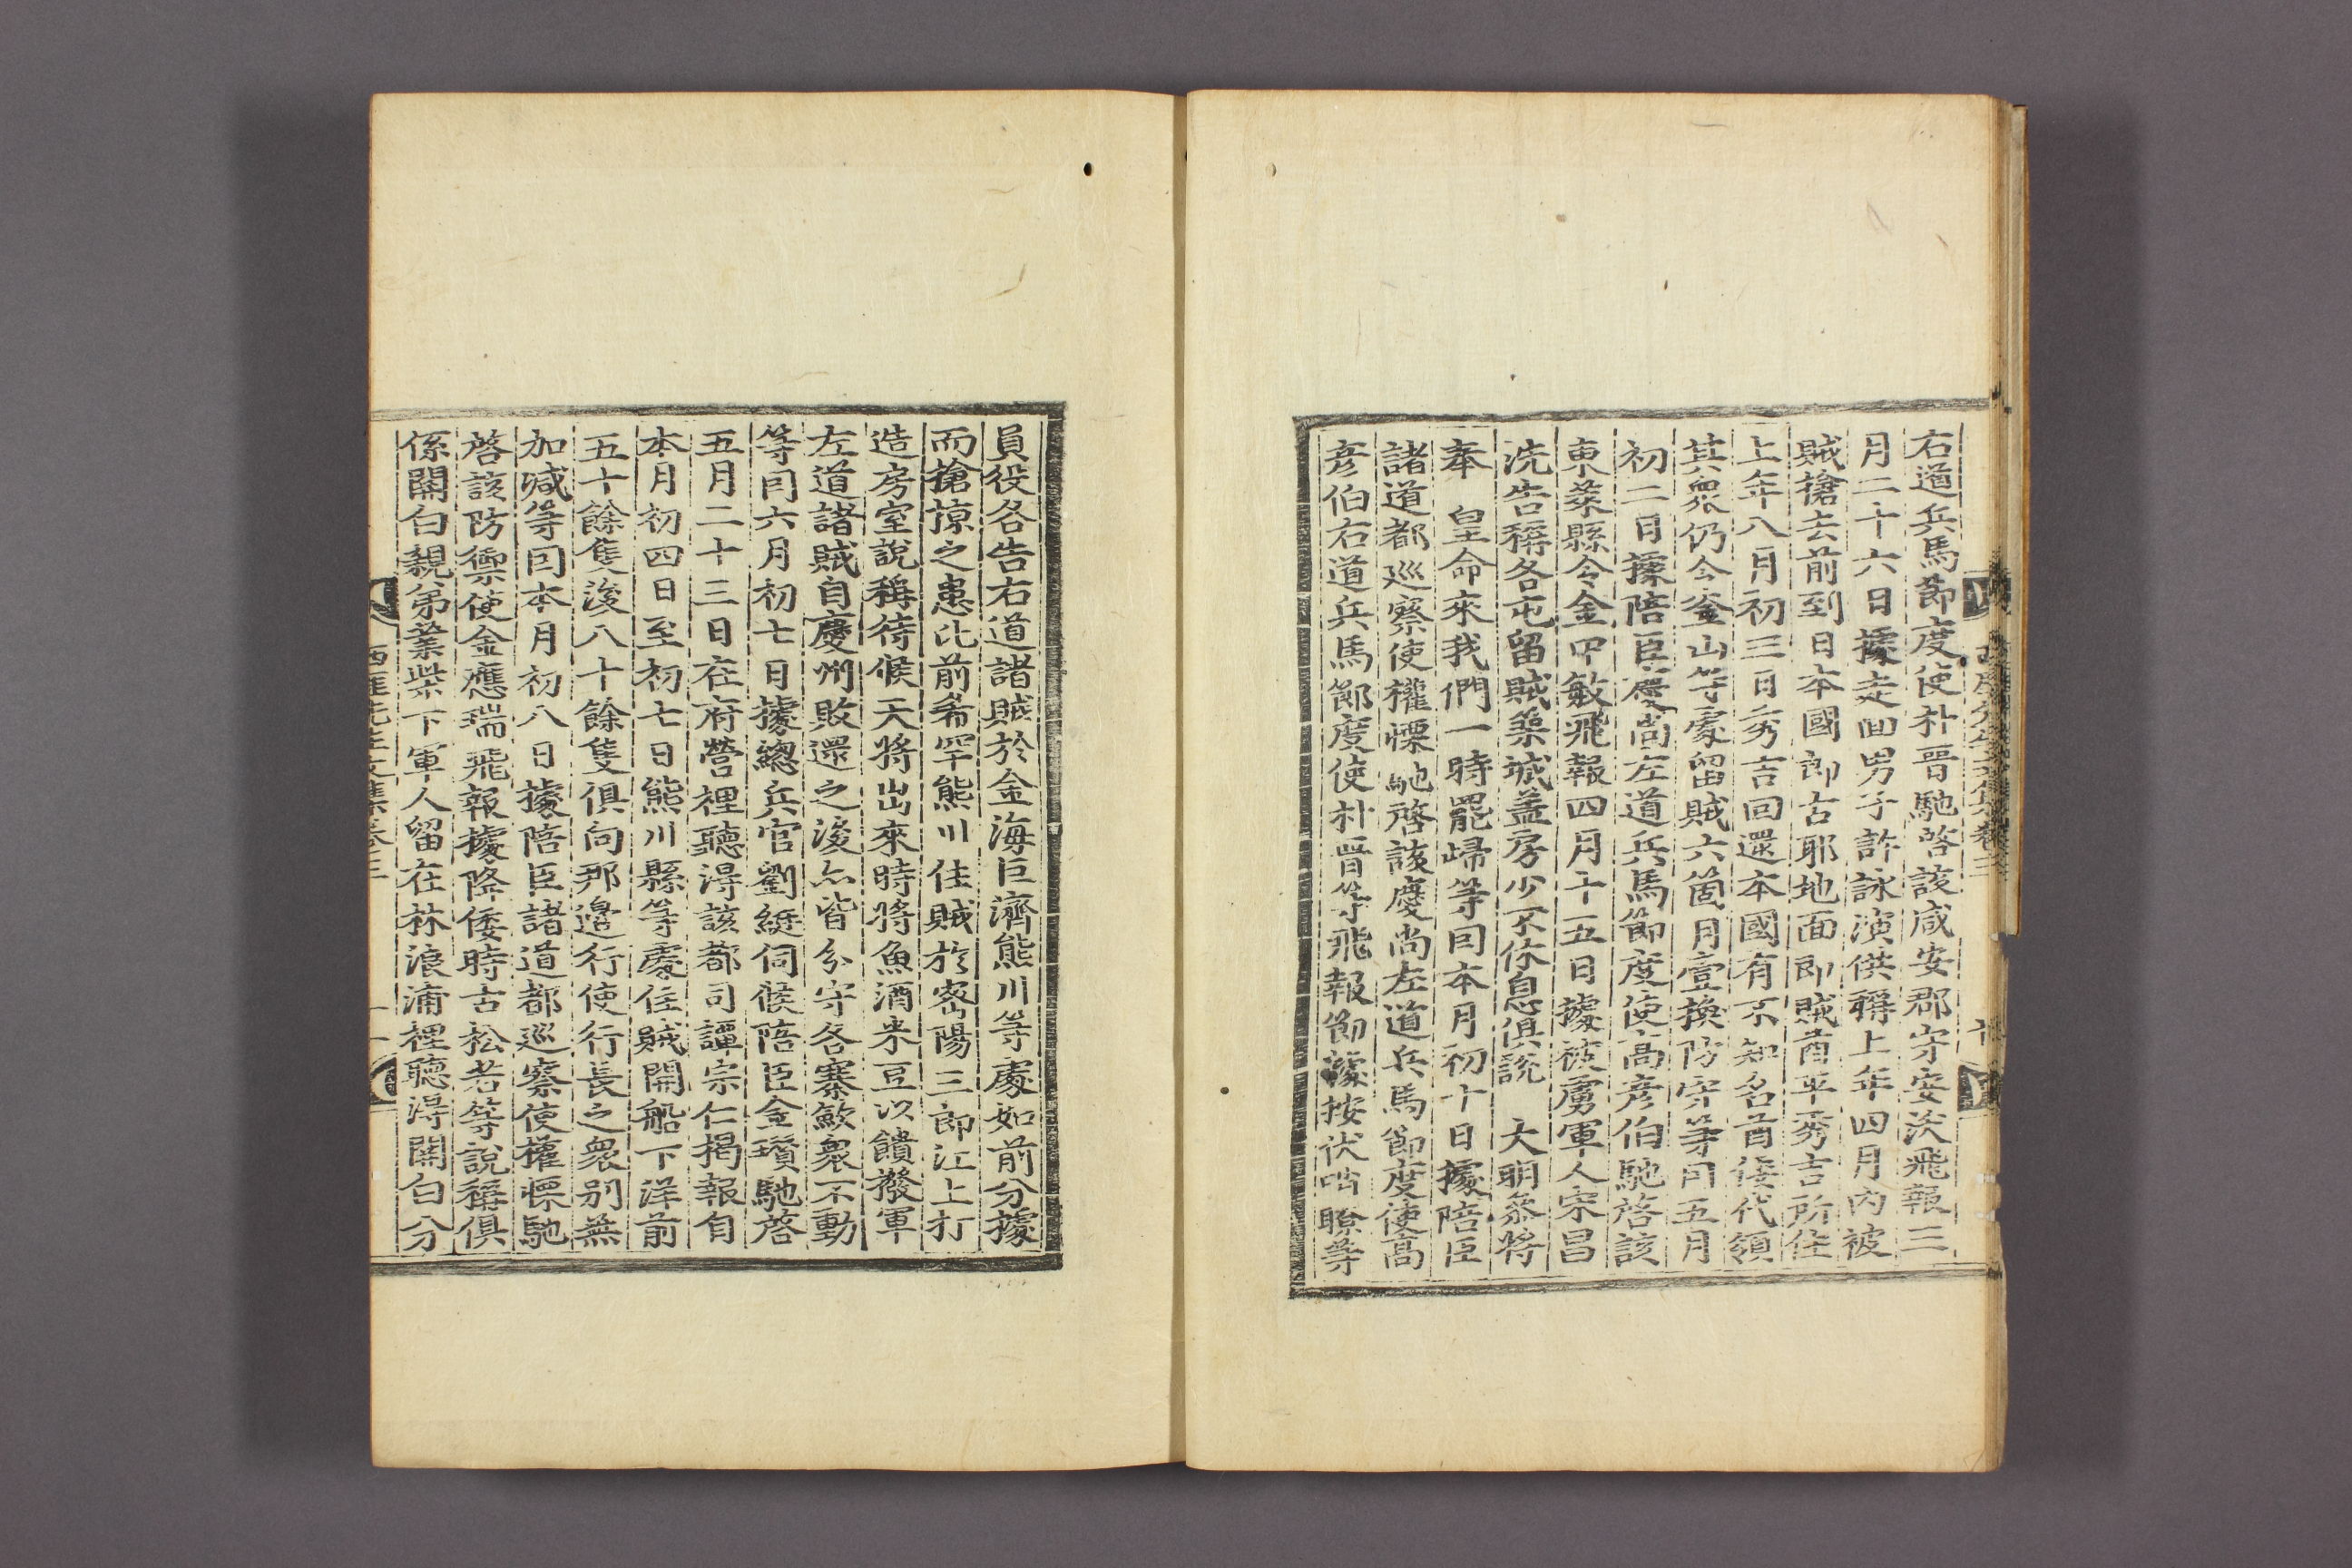 右道兵馬節度使朴晋馳啓該咸安郡守安沃飛報三
月二十六日據走回男子許詠演供稱上年四月內被
賊搶去前到日本國郞古耶地面即賊酋平秀吉所住
上年八月初三日秀吉回還本國有不知名酋倭代領
其衆仍令釜山等處留賊六箇月壹換防守等因五月
初二日據陪臣慶尙左道兵馬節度使高彦伯馳啓該
東萊縣令金中敏飛報四月十五日據被虜軍人宋昌
洗告稱各屯留賊築城盖房少不休息俱說 大明叅將
奉 皇命來我們一時罷歸等因本月初十日據陪臣
諸道都巡察使權慄馳啓該慶尙左道兵馬節度使高
彦伯右道兵馬節度使朴晋等飛報節據按伏哨瞭等
員役各告右道諸賊於金海巨濟熊川等處如前分據
而搶掠之患比前希罕熊川住賊於密陽三郞江上打
造房室說稱待候天將出來時將魚酒米豆以饋撥軍
左道諸賊自慶州敗還之後亦皆分守各寨歛衆不動
等因六月初七日據緫兵官劉綎伺候陪臣金瓚馳啓
五月二十三日在府營裡聽得該都司譚宗仁揭報自
本月初四日至初七日熊川縣等處住賊開船下洋前
五十餘隻後八十餘隻俱向那邊行使行長之衆別無
加减等因本月初八日據陪臣諸道都巡察使權慄馳
啓該防禦使金應瑞飛報據降倭時古松若等說稱俱
係關白親弟業柴下軍人留在林浪浦裡聽得關白分
西厓先生文集卷三